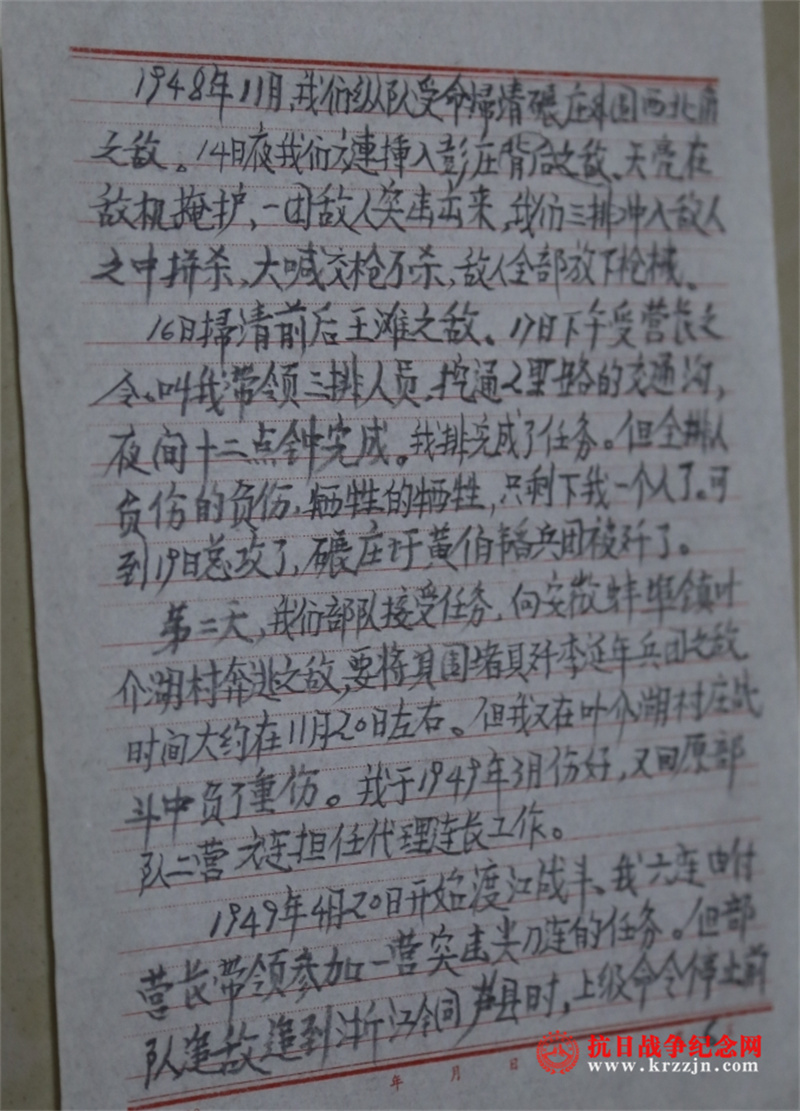 1948年11月,我们纵队受命掃清碾庄外围西北角
之敌。14日夜我们六連挿入彭庄背后之敌、天亮在
敌机掩护,一团敌人突击出来,我们三排冲入敌人
之中拼杀,大喊交枪不杀,敌人全部放下枪械、
16日掃清前后王滩之敌、17日下午受营长之
令。叫我带领三排人员,挖通2里路的交通沟,
夜间十二点钟完成。我排完成了任务。但全排人
负伤的负伤,牺牲的牺牲,只剩下我一个人了。可
到19日总攻了,碾庄圩黄伯韬兵团被歼了。
第二天,我们部队接受任务,向安徽蚌埠镇叶
介湖村奔逃之敌,要将其围堵具歼李延年兵团之敌
时间大约在11月20日左右。但我又在叶介湖村庄战
斗中负了重伤。我于1949年3月份好,又回原部
队二营六连担任代理连长工作。
1949年4月20日开始渡江战斗、我六连由付
营长带领参加一营突击尖刀连的任务。但部
队追敌追到浙江 县时,上级命令停止前
年 月 日
6
抗日战争纪念网
www.krzzjn.com